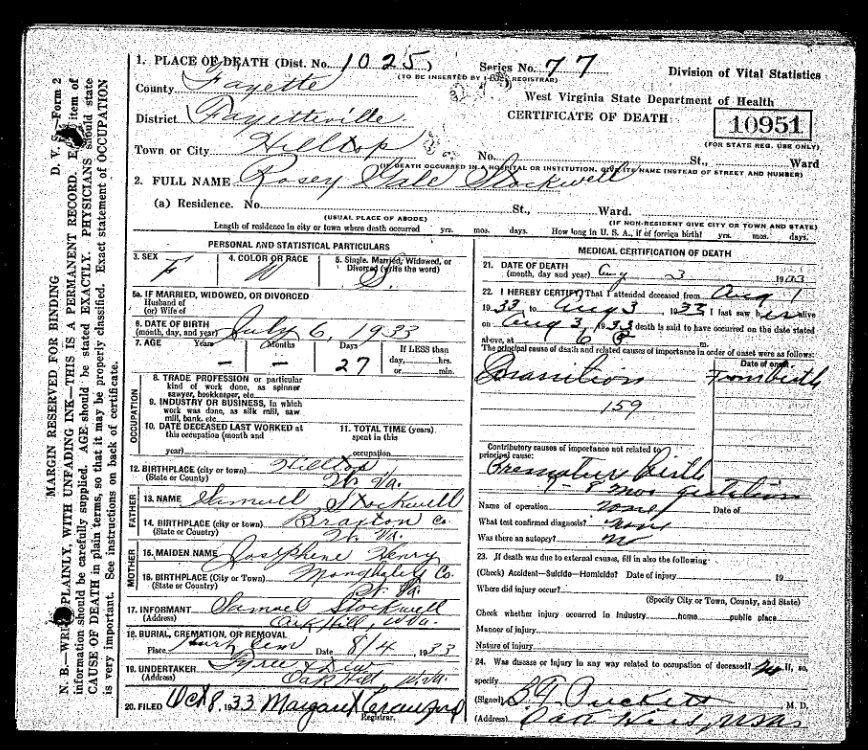 D. V. S.—Form 2
MARGIN RESERVED FOR BINDING
N. B.—WRITE PLAINLY, WITH UNFADING INK—THIS IS A PERMANENT RECORD. Every item of
information should be carefully supplied. AGE should be stated EXACTLY. PHYSICIANS should state
CAUSE OF DEATH in plain terms, so that it may be properly classified. Exact statement of OCCUPATION
is very important. See instructions on back of certificate.
1. PLACE OF DEATH (Dist. No. 1025) Series No. 77 Division of Vital Statistics
(TO BE INSERTED BY REGISTRAR)
County Fayette
West Virginia State Department of Health
District Fayetteville
CERTIFICATE OF DEATH
10951
(FOR STATE REG. USE ONLY)
Town or City Hilltop No. St., Ward
(IF DEATH OCCURRED IN A HOSPITAL OR INSTITUTION, GIVE ITS NAME INSTEAD OF STREET AND NUMBER)
2. FULL NAME Rosey Gale Stockwell
(a) Residence. No. St., Ward.
(USUAL PLACE OF ABODE) (IF NON-RESIDENT GIVE CITY OR TOWN AND STATE)
Length of residence in city or town where death occurred yrs. mos. days. How long in U. S. A., if of foreign birth yrs. mos. days.
PERSONAL AND STATISTICAL PARTICULARS
3. SEX 4. COLOR OR RACE 5. Single, Married, Widowed, or
Divorced (write the word)
F W S.
5a. IF MARRIED, WIDOWED, OR DIVORCED
Husband of
(or) Wife of
6. DATE OF BIRTH
(month, day, and year) July 6, 1933
7. AGE Years Months Days If LESS than
— — 27 day, hrs.
or min.
OCCUPATION
8. TRADE, PROFESSION or particular
kind of work done, as spinner
sawyer, bookkeeper, etc.
9. INDUSTRY OR BUSINESS, in which
work was done, as silk mill, saw
mill, bank, etc.
10. DATE DECEASED LAST WORKED at
this occupation (month and
year)
11. TOTAL TIME (years)
spent in this
occupation
12. BIRTHPLACE (city or town) Hilltop
(State or County) W. Va.
FATHER
13. NAME Samuel Stockwell
14. BIRTHPLACE (city or town) Braxton Co.
(State or Country) W. Va.
MOTHER
15. MAIDEN NAME Josephine Henry
16. BIRTHPLACE (City or Town) Co.
(State or Country)
17. INFORMANT Samuel Stockwell
(Address) Oak Hill, W Va.
18. BURIAL, CREMATION, OR REMOVAL
Place Cem Date 8/4 1933
19. UNDERTAKER Tyree &
(Address) Oak Hill W. Va.
20. FILED Oct 8, 1933 Margaret Crawford
Registrar.
MEDICAL CERTIFICATION OF DEATH
21. DATE OF DEATH
(month, day and year) Aug 3 1933
22. I HEREBY CERTIFY, That I attended deceased from Aug 1
1933 to Aug 3 1933 I last saw her alive
on Aug 3, 1933 death is said to have occurred on the date stated
above, at 6 P m.
The principal cause of death and related causes of importance in order of onset were as follows:
Date of onset
Inanition From birth
159
Contributory causes of importance not related to
principal cause:
Premature Birth
8 mos gestation
Name of operation none Date of
What test confirmed diagnosis? none
Was there an autopsy? no
23. If death was due to external causes, fill in also the following
(Check) Accident—Suicide—Homicide? Date of injury 19
Where did injury occur?
(Specify City or Town, County, and State)
Check whether injury occurred in Industry home public place
Manner of injury
Nature of injury
24. Was disease or injury in any way related to occupation of deceased? No If, so,
specify
(Signed) Puckett M. D.
(Address) Oak Hill, W Va